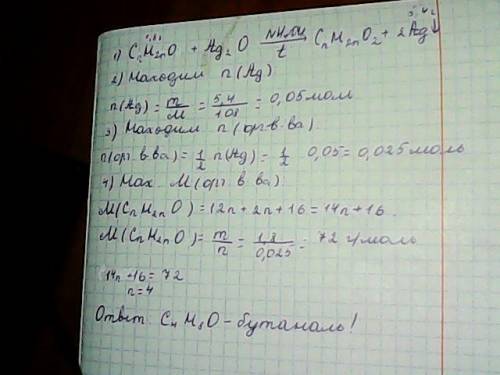 1,8г 5,4г
1) CnH2nO + Ag2O NH4OH/t CnH2nO2 + 2Ag↓
2) Находим n(Ag)
n(Ag) = m/M = 5,4/108 = 0,05моль
3) Находим n(орг.в-ва)
n(орг.в-ва) = 1/2 n(Ag) = 1/2 0,05 = 0,025моль
4) Нах. M(орг.в-ва)
M(CnH2nO) = 12n + 2n + 16 = 14n + 16.
M(CnH2nO) = m/n = 1,8/0,025 = 72 г/моль
14n + 16 = 72
n = 4
Ответ: C4H8O - бутаналь!